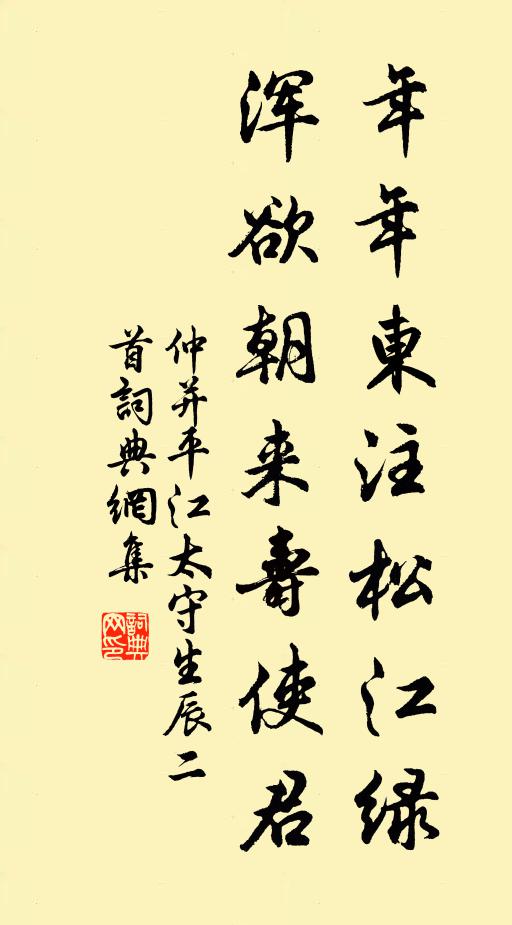 年年東注松江緑
渾欲朝来壽使君
仲并平江太守生辰二
首詞典網集
詞典网印